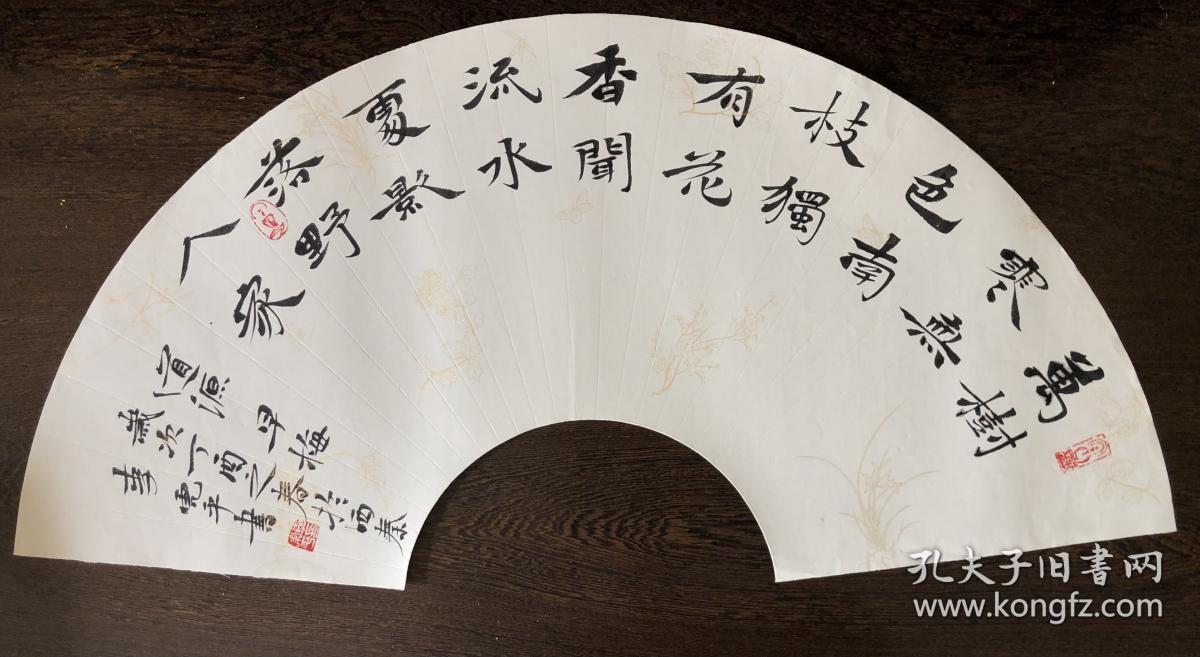 萬樹
寒無
色南
枝獨
有花
香聞
流水
處影
落野
人家
道源 早梅
歲次丁酉之春於西秦
李 平書
孔夫子旧書网
www.kongfz.com